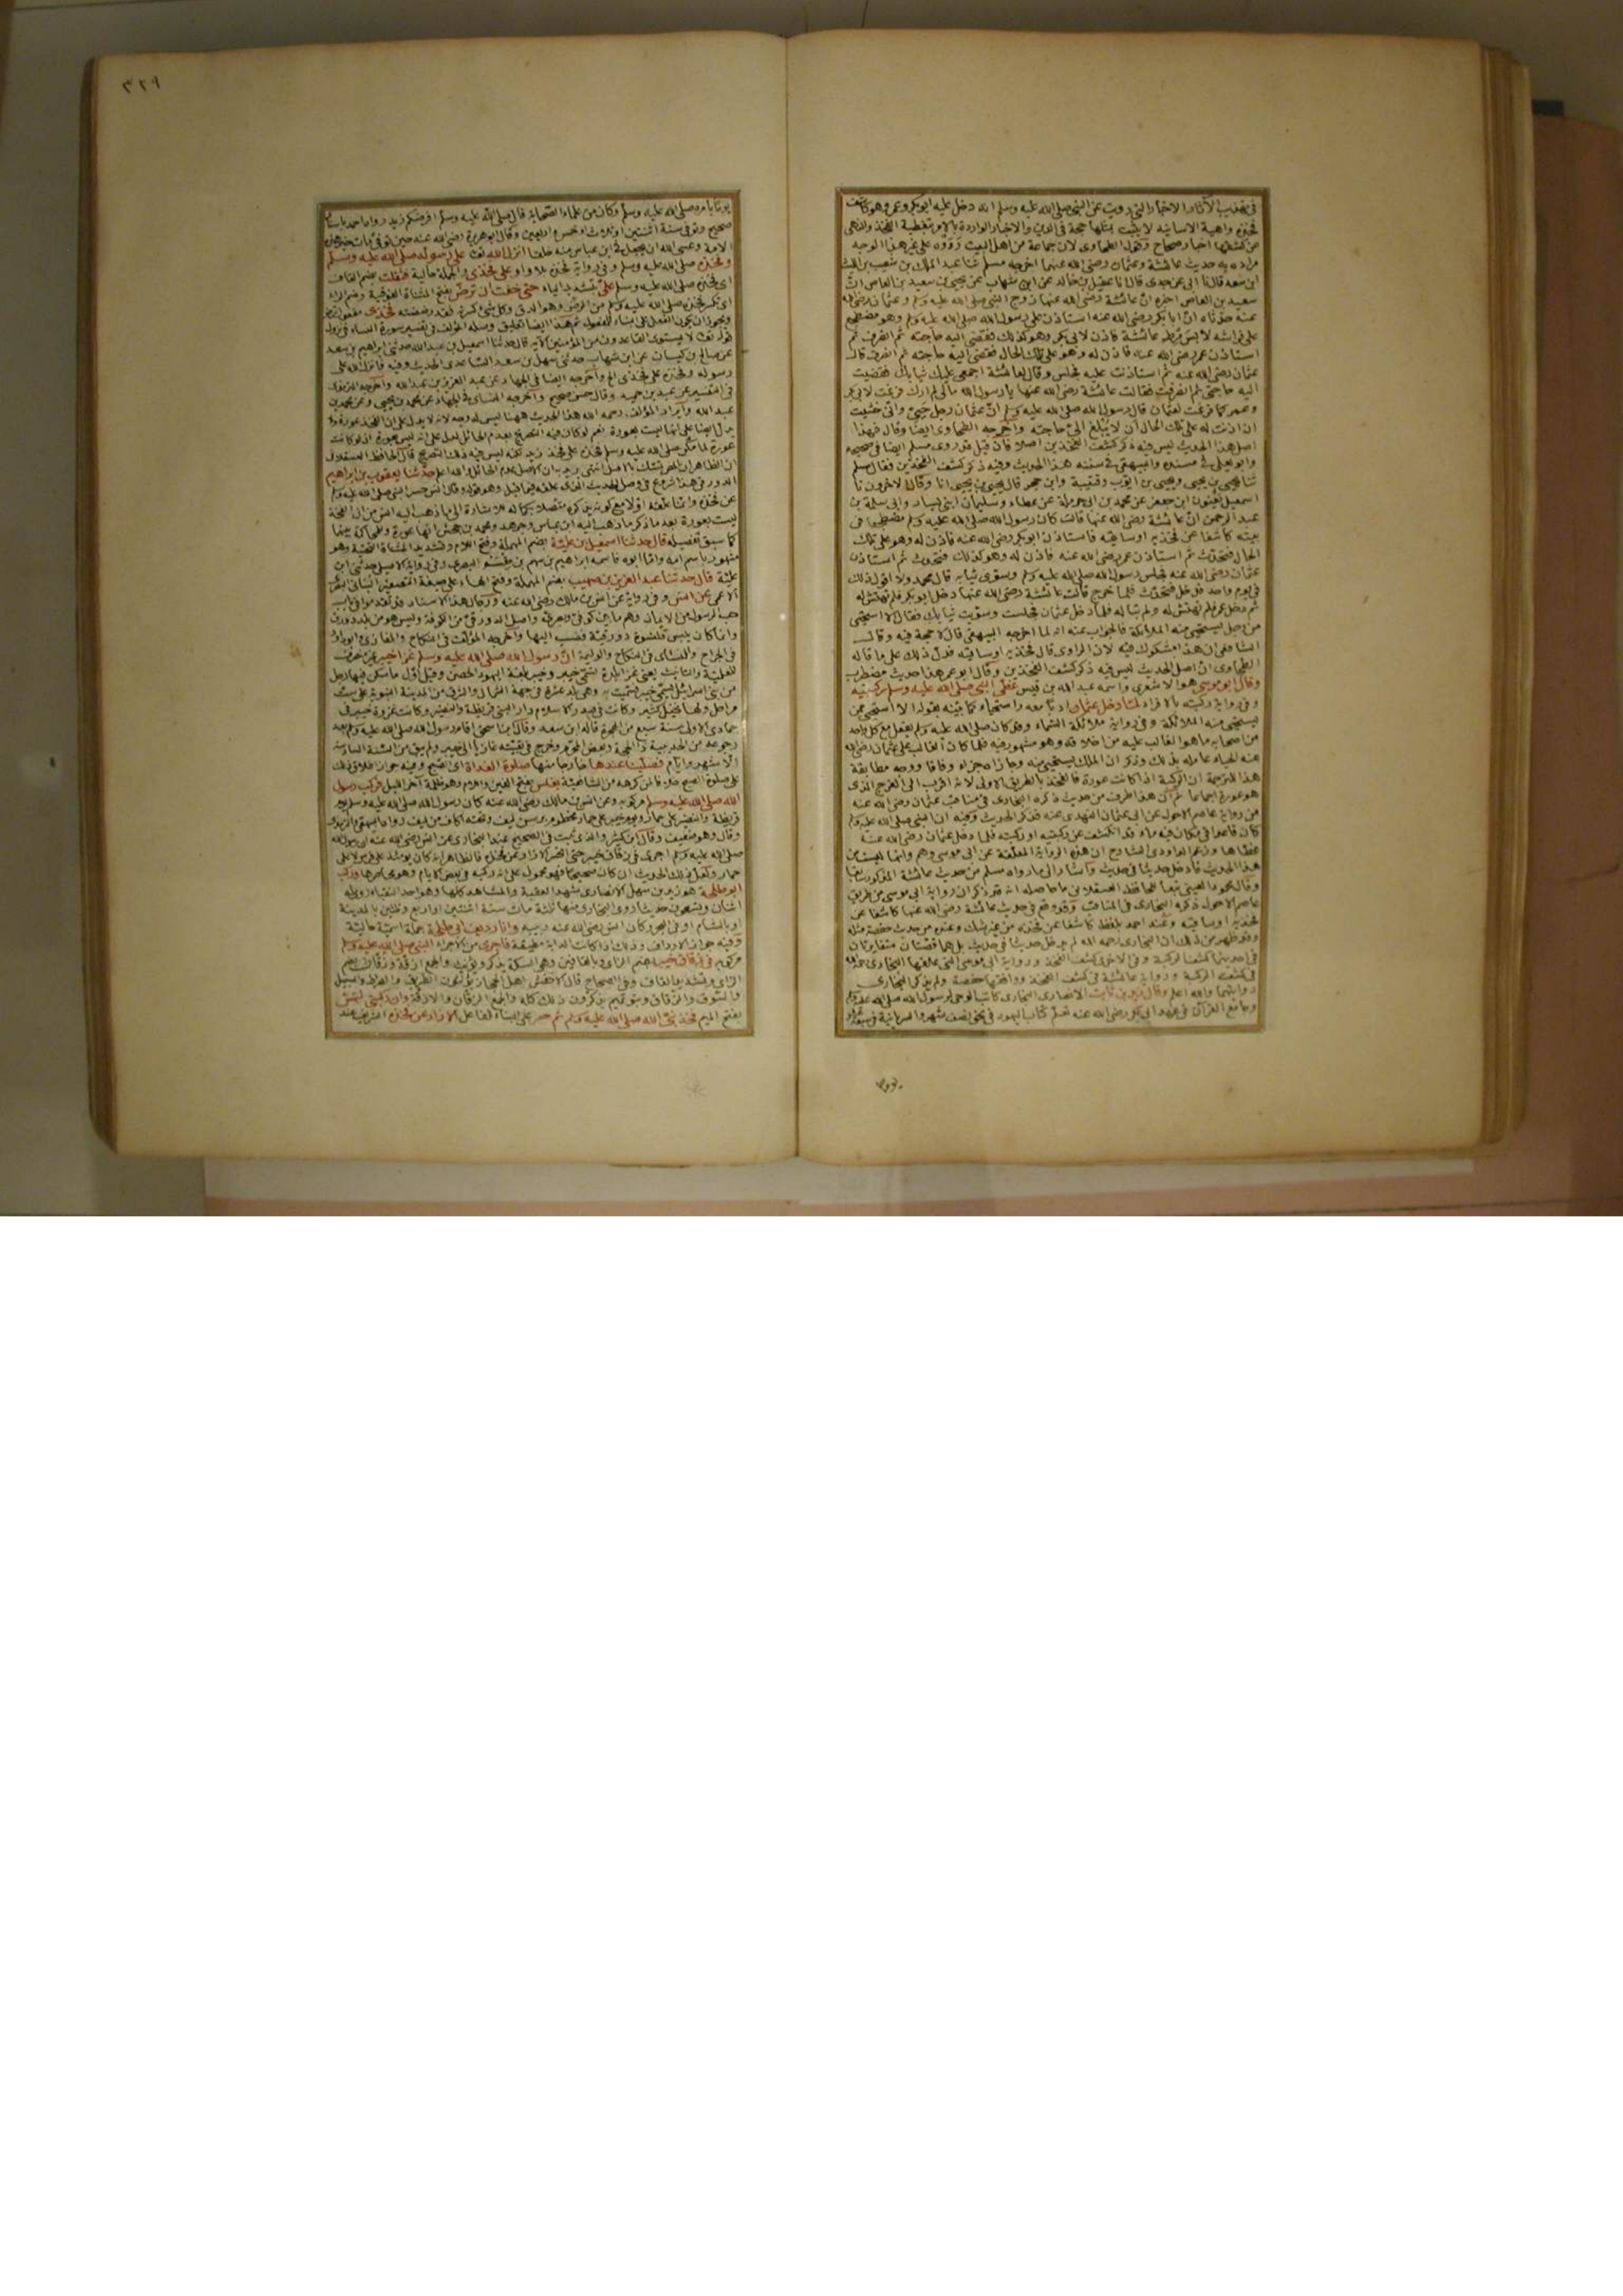 ٣٢٩
في تهذيب الآثار الاخبار التي رويت عن النبي صلى الله عليه وسلم انه دخل عليه ابو بكر وعمر وهو كاشف
فخذه واهية الاسانيد لا يثبت بمثلها حجة في الدين والاخبار الواردة بالامر بتغطية الفخذ والنهى
عن كشفها اخبار صحاح وقول الطحاوى لان جماعة من اهل البيت رووه على غير هذا الوجه
مراده به حديث عائشة وعثمان رضى الله عنهما اخرجه مسلم ثنا عبد الملك بن شعيب بن الليث
ابن سعد قال نا ابى عن جدى قال نا عقيل بن خالد عن ابن شهاب عن يحيى بن سعيد بن العاص انّ
سعيد بن العاص اخبره انّ عائشة رضى الله عنها زوج النبي صلى الله عليه وسلم وعثمان رضى الله
عنه حدثاه انّ ابا بكر رضى الله عنه استاذن على رسول الله صلى الله عليه وسلم وهو مضطجع
على فراشه لابس مرط عائشة فاذن لابى بكر وهو كذلك فقضى اليه حاجته ثم انصرف ثم
استاذن عمر رضى الله عنه فاذن له وهو على تلك الحال فقضى اليه حاجته ثم انصرف قال
عثمان رضى الله عنه ثم استاذنت عليه فجلس وقال لعائشة اجمعى عليك ثيابك فقضيت
اليه حاجتى ثم انصرفت فقالت عائشة رضى الله عنها يا رسول الله مالى لم ارك فزعت لابى بكر
وعمر كما فزعت لعثمان قال رسول الله صلى الله عليه وسلم انّ عثمان رجل حيىّ وانى خشيت
ان اذنت له على تلك الحال ان لا يبلغ الىّ حاجته واخرجه الطحاوى ايضا وقال فهذا
اصل هذا الحديث ليس فيه ذكر كشف الفخذين اصلا فان قيل قد روى مسلم ايضا في صحيحه
وابو يعلى في مسنده والبيهقى في سننه هذا الحديث وفيه ذكر كشف الفخذين فقال مسلم
ثنا يحيى بن يحيى ويحيى بن ايوب وقتيبة وابن حجر قال يحيى بن يحيى انا وقال الاخرون نا
اسمعيل يعنون ابن جعفر عن محمد بن ابى حرملة عن عطاء وسليمان ابنى يسار وابى سلمة بن
عبد الرحمن انّ عائشة رضى الله عنها قالت كان رسول الله صلى الله عليه وسلم مضطجعا في
بيته كاشفا عن فخذيه او ساقيه فاستاذن ابو بكر رضى الله عنه فاذن له وهو على تلك
الحال فتحدث ثم استاذن عمر رضى الله عنه فاذن له وهو كذلك فتحدث ثم استاذن
عثمان رضى الله عنه فجلس رسول الله صلى الله عليه وسلم وسوّى ثيابه قال محمد ولا اقول ذلك
في يوم واحد فدخل فتحدث فلما خرج قالت عائشة رضى الله عنها دخل ابو بكر فلم تهتش له
ثم دخل عمر فلم تهتش له ولم تباله فلما دخل عثمان فجلست وسوّيت ثيابك فقال الا استحيى
من رجل يستحيى منه الملائكة فالجواب عنه انه لما اخرجه البيهقى قال لا حجة فيه وقال
الشافعى ان هذا مشكوك فيه لان الراوى قال فخذيه او ساقيه فدل ذلك على ما قاله
الطحاوى انّ اصل الحديث ليس فيه ذكر كشف الفخذين وقال ابو عمر هذا حديث مضطرب
وقال ابو موسى هو الاشعرى واسمه عبد الله بن قيس غطّى النبي صلى الله عليه وسلم ركبتيه
وفى رواية ركبته بالافراد لما دخل عثمان ادبا معه واستحياء كما بيّنه بقوله الا استحيى ممن
يستحيى منه الملائكة وفى رواية ملائكة السماء وقد كان صلى الله عليه وسلم يفعل مع كل واحد
من اصحابه ما هو الغالب عليه من اخلاقه وهو مشهور فيه فلما كان الغالب على عثمان رضى الله
عنه الحياء عامله بذلك وذكر ان الملك يستحيى منه وجازاه جزاء وفاقا ووجه مطابقة
هذا للترجمة ان الركبة اذا كانت عورة فالفخذ بالطريق الاولى لانه اقرب الى الفرج الذى
هو عورة اجماعا ثم ان هذا طرف من حديث ذكره البخارى في مناقب عثمان رضى الله عنه
من رواية عاصم الاحول عن ابى عثمان النهدى عنه فذكر الحديث وفيه ان النبي صلى الله عليه وسلم
كان قاعدا في مكان فيه ماء قد انكشف عن ركبتيه او ركبته فلما دخل عثمان رضى الله عنه
غطاها وزعم الداودى الشارح ان هذه الرواية المعلّقة عن ابى موسى وهم وانها ليست من
هذا الحديث فادخل حديثا في حديث واشار الى ما رواه مسلم من حديث عائشة المذكور سابقا
وقال محمود العينى تبعا للحافظ العسقلانى ما حاصله انه قد ذكر ان رواية ابى موسى من طريق
عاصم الاحول ذكره البخارى في المناقب وقد وقع في حديث عائشة رضى الله عنها كاشفا عن
فخذيه او ساقيه وعند احمد بلفظ كاشفا عن فخذه من غير شك وعنده من حديث حفصة مثله
وقد ظهر من ذلك ان البخارى رحمه الله لم يدخل حديثا في حديث بل هما قصتان متغايرتان
في احديهما كشف الركبة وفى الاخرى كشف الفخذ ورواية ابى موسى التى علقها البخارى
في كشف الركبة ورواية عائشة في كشف الفخذ ووافقتها حفصة ولم يذكر البخارى
روايتهما والله اعلم وقال زيد بن ثابت الانصارى النجارى كاتب الوحى لرسول الله صلى الله عليه وسلم
وجامع القرآن في عهد ابى بكر رضى الله عنه تعلم كتاب اليهود في نحو نصف شهر والسريانية في سبعة عشر
يوما
يوما بامره صلى الله عليه وسلم وكان من علماء الصحابة قال صلى الله عليه وسلم افرضكم زيد رواه احمد باسناد
صحيح وتوفى سنة اثنتين او ثلاث او خمس واربعين وقال ابو هريرة رضى الله عنه حين توفى مات حبر هذه
الامة وعسى الله ان يجعل في ابن عباس منه خلفا انزل الله تعالى على رسوله صلى الله عليه وسلم
وفخذه صلى الله عليه وسلم وفى رواية فخذه بلا واو على فخذى والجملة حالية فثقلت بضم القاف
اى فخذه صلى الله عليه وسلم علىّ بتشديد الياء حتى خفت ان ترضّ بفتح المثناة الفوقية وضم الراء
اى تكسر فخذه صلى الله عليه وسلم من الرضّ وهو الدق وكل شئ كسرته فقد رضضته فخذى مفعول ترض
ويجوز ان يكون الفعل على بناء المفعول ثم هذا ايضا تعليق وصله المؤلف في تفسير سورة النساء في نزول
قوله تعالى لا يستوى القاعدون من المؤمنين الاية قال حدثنا اسمعيل بن عبد الله حدثنى ابراهيم بن سعد
عن صالح بن كيسان عن ابن شهاب حدثنى سهل بن سعد الساعدى الحديث وفيه فانزل الله على
رسوله وفخذه على فخذى الخ واخرجه ايضا في الجهاد عن عبد العزيز بن عبد الله واخرجه الترمذى
في التفسير عن عبد بن حميد وقال حسن صحيح واخرجه النسائى في الجهاد عن محمد بن يحيى وعن محمد بن
عبد الله وايراد المؤلف رحمه الله هذا الحديث ههنا ليس له وجه لانه لا يدل على ان الفخذ عورة ولا
يدل ايضا على انها ليست بعورة نعم لو كان فيه التصريح بعدم الحائل لدل على انه ليس بعورة اذ لو كانت
عورة لما مكّن صلى الله عليه وسلم فخذه على فخذ زيد لكنه ليس فيه ذلك التصريح قال الحافظ العسقلانى
ان الظاهر ان المصنف تمسك بالاصل انتهى يريد ان الاصل عدم الحائل والله اعلم حدثنا يعقوب بن ابراهيم
الدورقى هذا شروع في وصل الحديث الذى علقه فيما قبل وهو قوله وقال انس حسر النبي صلى الله عليه وسلم
عن فخذه وانما علقه اولا مع كونه يذكره متصلا بكماله للاشارة الى ما ذهب اليه انس من ان الفخذ
ليست بعورة بعد ما ذكر ما ذهب اليه ابن عباس وجرهد ومحمد بن جحش انها عورة وللمحاكمة بينهما
كما سبق تفصيله قال حدثنا اسمعيل بن عليّة بضم المهملة وفتح اللام وتشديد المثناة التحتية وهو
مشهور باسم امه واما ابوه فاسمه ابراهيم بن سهم بن مقسم البصرى وفى رواية الاصيلى حدثنى ابن
عليّة قال حدثنا عبد العزيز بن صهيب بضم المهملة وفتح الهاء على صيغة التصغير البنانى البصرى
الاعمى عن انس وفى رواية عن انس بن مالك رضى الله عنه ورجال هذا الاسناد قد تقدموا في باب
حب الرسول من الايمان وهم ما بين كوفى وبصرىّ واصل الدورقى من الكوفة وليس هو من بلد دورق
وانما كان يلبس قلنسوة دورقية فنسب اليها واخرجه المؤلف في النكاح والمغازى وابو داود
في الخراج والنسائى في النكاح والوليمة انّ رسول الله صلى الله عليه وسلم غزا خيبر غير منصرف
للعلمية والتانيث يعنى غزا بلدة تسمّى خيبر وخيبر بلغة اليهود الحصن وقيل اول ما سكن فيها رجل
من بنى اسرائيل يسمّى خيبر فسميت به وهى بلد عنزة في جهة الشمال والشرق من المدينة النبوية على ست
مراحل ولها نخيل كثير وكانت في صدر الاسلام دارا لبنى قريظة والنضير وكانت غزوة خيبر في
جمادى الاولى سنة سبع من الهجرة قاله ابن سعد وقال ابن اسحق اقام رسول الله صلى الله عليه وسلم بعد
رجوعه من الحديبية ذا الحجة وبعض المحرّم وخرج في بقيته غازيا الى خيبر ولم يبق من السنة السادسة
الا شهر وايام فصلّينا عندها خارجا منها صلوة الغداة اى الصبح وفيه جواز اطلاق ذلك
على صلوة الصبح خلافا لمن كرهه من الشافعية بغلس بفتح الغين واللام وهو ظلمة آخر الليل فركب رسول
الله صلى الله عليه وسلم مركوبه وعن انس بن مالك رضى الله عنه كان رسول الله صلى الله عليه وسلم يوم
قريظة والنضير على حمار ويوم خيبر على حمار مخطوم برسن ليف وتحته اكاف من ليف رواه البيهقى والترمذى
وقال وهو ضعيف وقال ابن كثير والذى ثبت في الصحيح عند البخارى عن انس رضى الله عنه ان رسول الله
صلى الله عليه وسلم اجرى في زقاق خيبر حتى انحسر الازار عن فخذه فالظاهر انه كان يومئذ على فرس لا على
حمار ولعل ذلك الحديث ان كان صحيحا فهو محمول على انه ركبه في بعض الايام وهو محاصرها وركب
ابو طلحة هو زيد بن سهل الانصارى شهد العقبة والمشاهد كلها وهو احد النقباء روى له
اثنان وتسعون حديثا روى البخارى منها ثلثة مات سنة اثنتين او اربع وثلثين بالمدينة
او بالشام او في البحر وكان انس رضى الله عنه ربيبه وانا رديف ابى طلحة جملة اسمية حالية
وفيه جواز الارداف وذلك اذا كانت الدابة مطيقة فاجرى من الاجراء النبي صلى الله عليه وسلم
مركوبه في زقاق خيبر بضم الزاى وبالقافين وهى السكة يذكر ويؤنث والجمع ازقة وزقاق بضم
الزاى وتشديد القاف وفى الصحاح قال الاخفش اهل الحجاز يؤنثون الطريق والصراط والسبيل
والسوق والزقاق وبنو تميم يذكرون ذلك كله والجمع الزقان والازقة وان ركبتى لتمسّ
بفتح الميم فخذ نبىّ الله صلى الله عليه وسلم ثم حسر على البناء للفاعل الازار عن فخذه الشريف عند